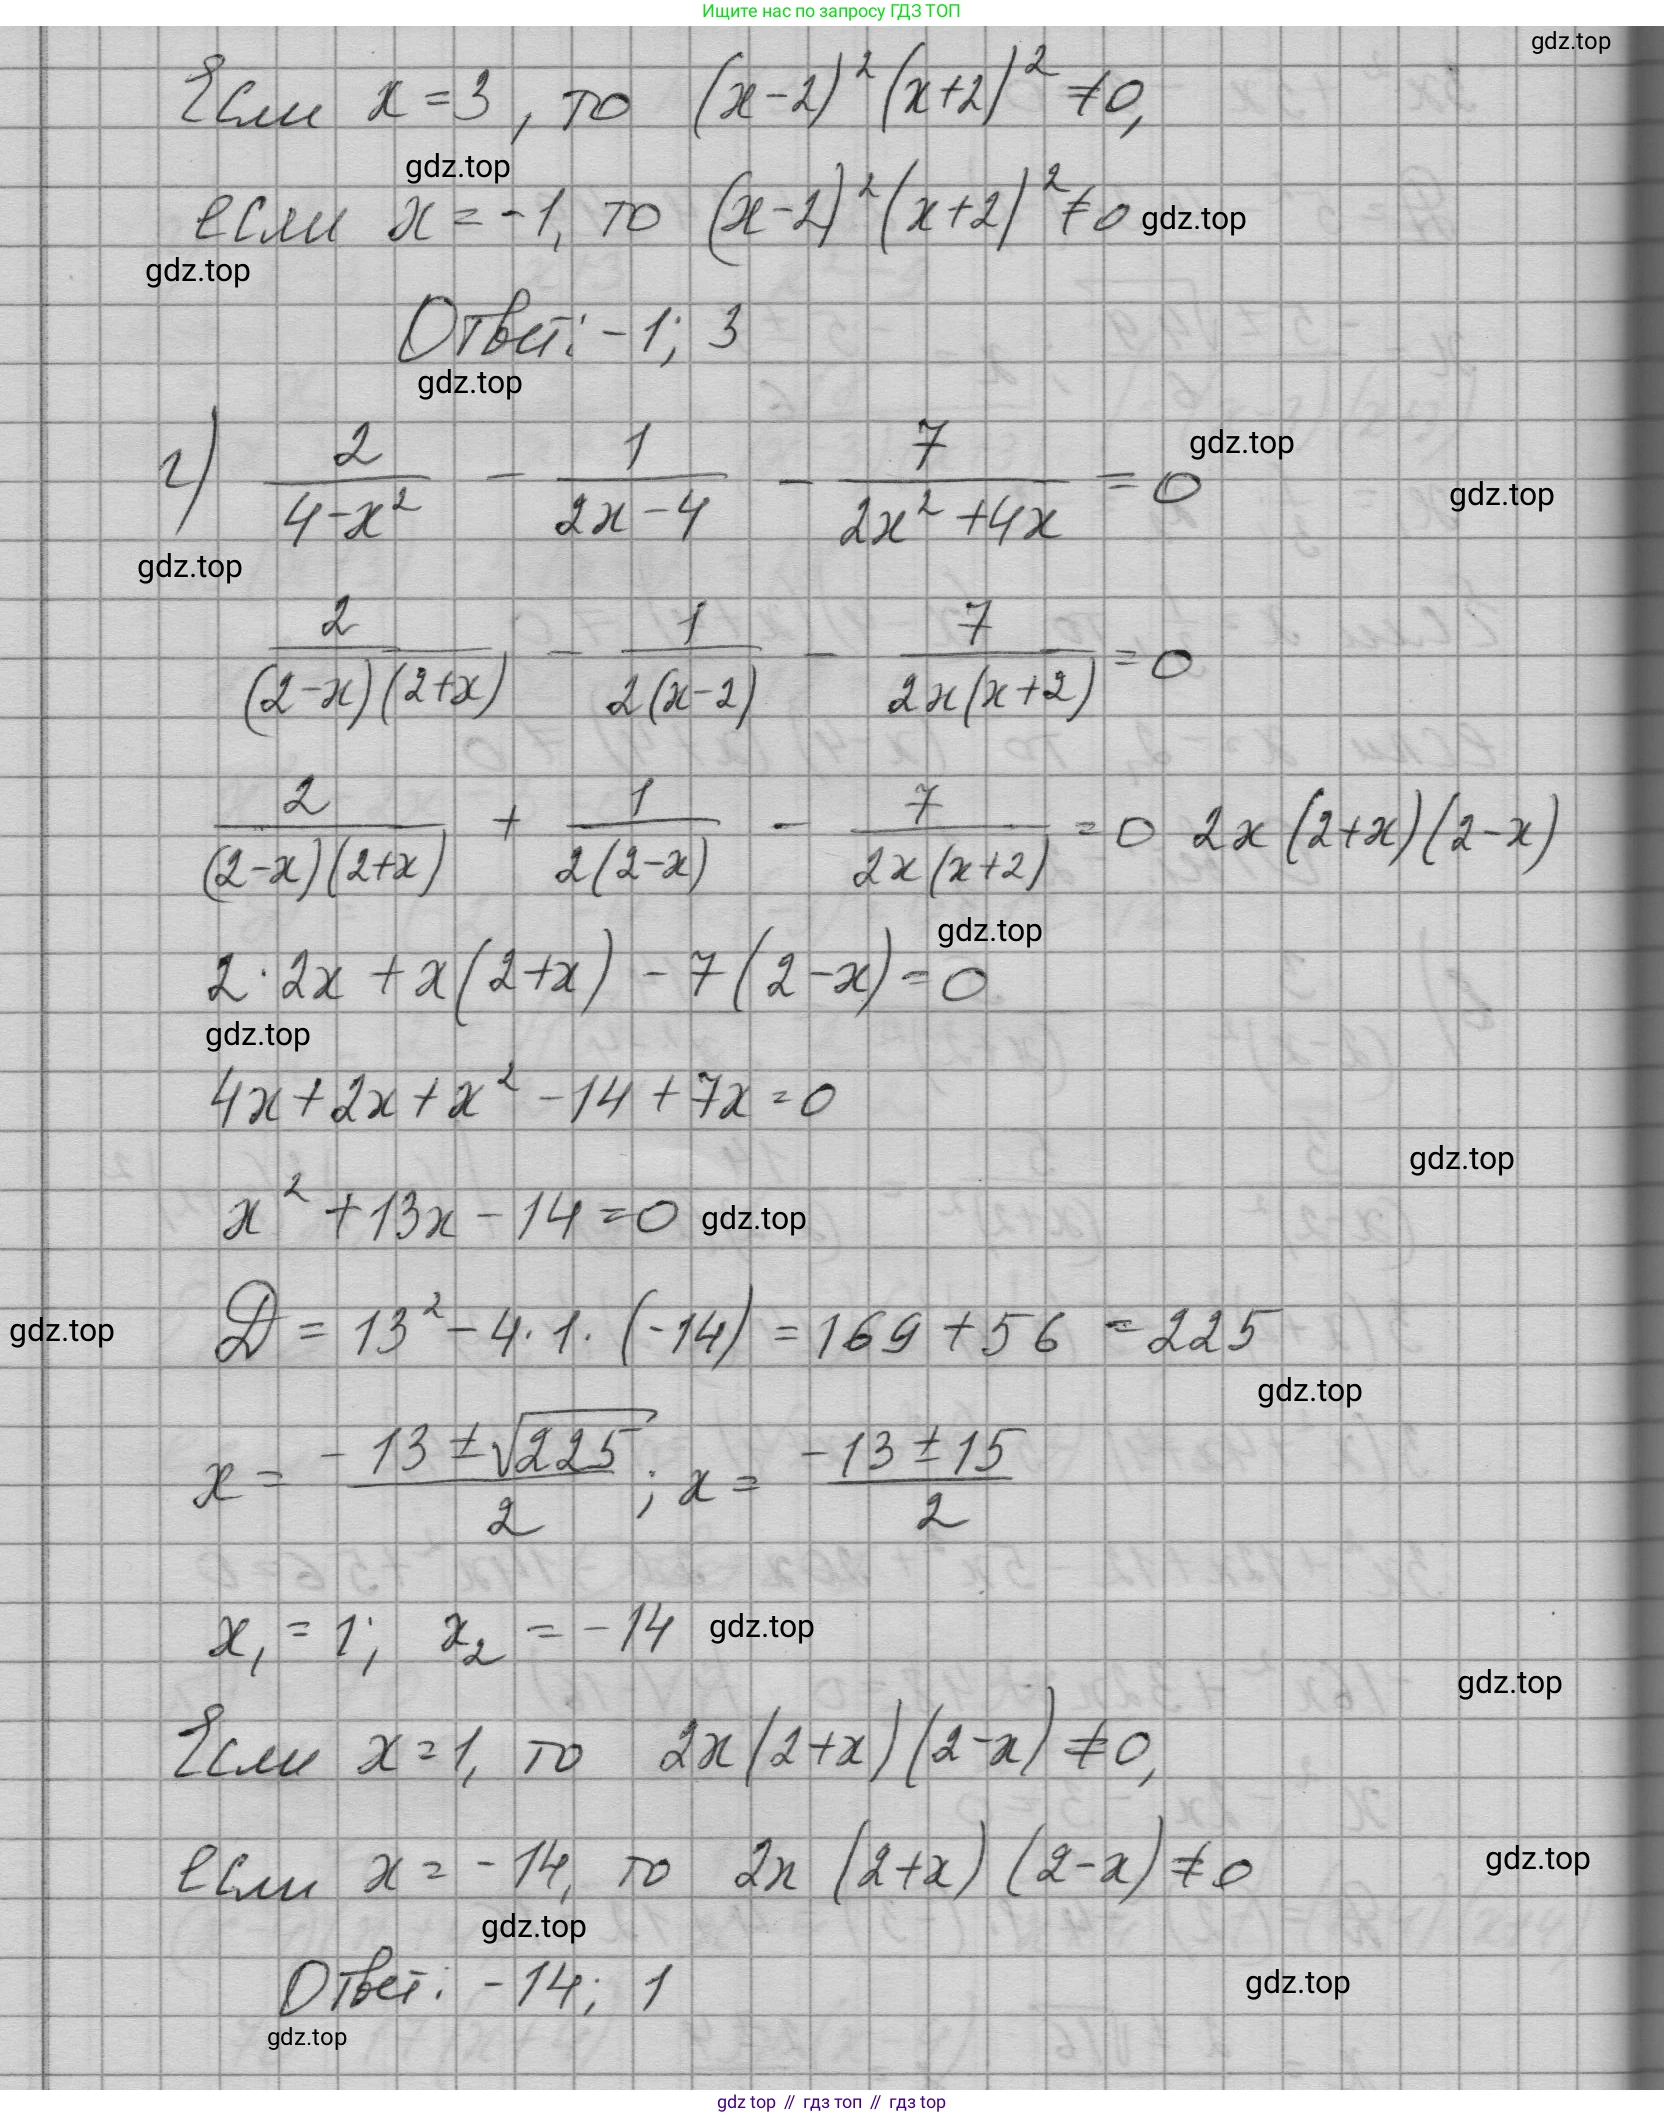 Ищите нас по запросу ГДЗ ТОП
gdz.top
Если x = 3, то (x-2)² (x+2)² ≠0,
gdz.top
если x = -1, то (x-2)² (x+2)² ≠0 gdz.top
gdz.top
Ответ: -1; 3
gdz.top
г) 2/(4-x²) - 1/(2x-4) - 7/(2x²+4x) = 0 gdz.top
gdz.top
gdz.top
2/((2-x)(2+x)) - 1/(2(x-2)) - 7/(2x(x+2)) = 0
2/((2-x)(2+x)) + 1/(2(2-x)) - 7/(2x(x+2)) = 0 2x(2+x)(2-x)
gdz.top
2·2x + x(2+x) - 7(2-x) = 0
gdz.top
4x+2x+x² -14+7x=0
gdz.top
x² +13x-14=0 gdz.top
gdz.top D = 13² - 4·1·(-14) = 169+56 = 225
gdz.top
x = (-13±√225)/2; x = (-13±15)/2
x₁ = 1; x₂ = -14 gdz.top
gdz.top
Если x=1, то 2x(2+x)(2-x) ≠0,
если x = -14, то 2x (2+x) (2-x) ≠0 gdz.top
gdz.top
Ответ: -14; 1 gdz.top
gdz.top
gdz top // гдз топ // гдз top